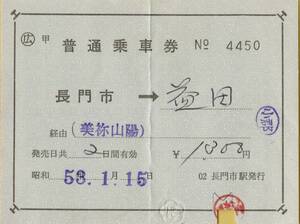 広 甲 普通乗車券 № 4450
長門市 → 益田
経由 (美祢山陽)
発売日共 2 日間有効 ¥ 円
昭和 58.1.15 月 日 02 長門市駅発行